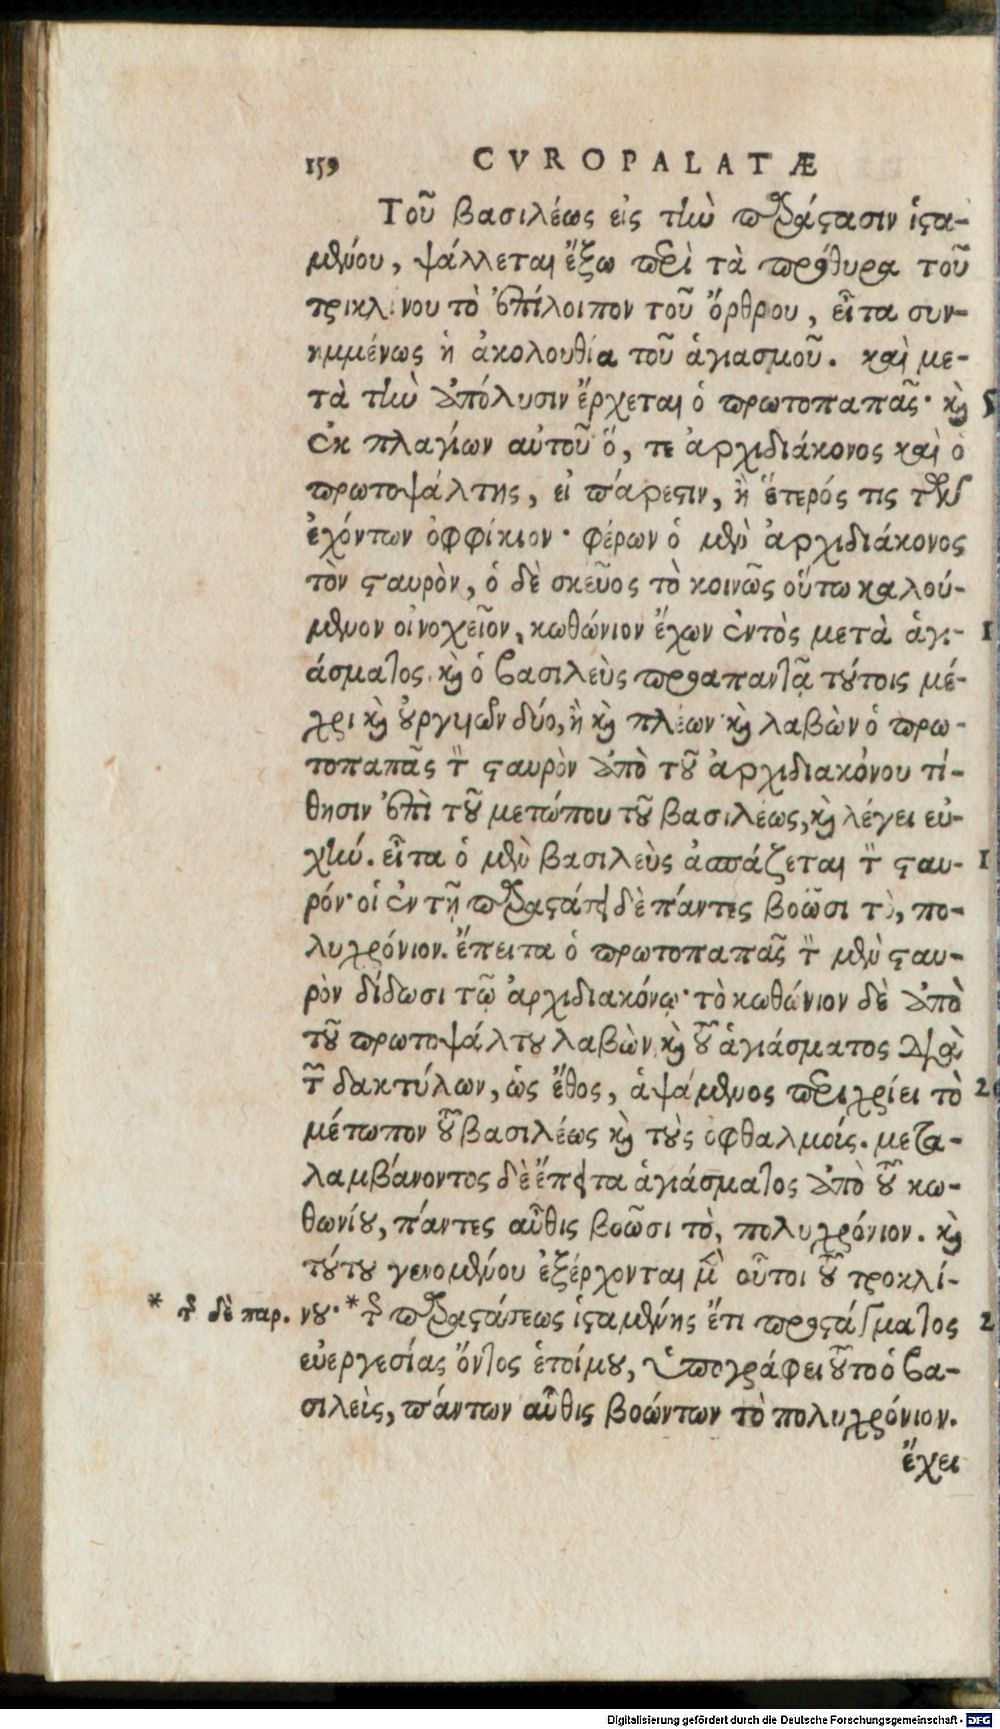 159 CVROPALATÆ
Τοῦ βασιλέως εἰς τὴν παράστασιν ἱστα-
μένου, ψάλλεται ἔξω περὶ τὰ πρόθυρα τοῦ
τρικλίνου τὸ ἐπίλοιπον τοῦ ὄρθρου, εἶτα συν-
ημμένως ἡ ἀκολουθία τοῦ ἁγιασμοῦ. καὶ με-
τὰ τὴν ἀπόλυσιν ἔρχεται ὁ πρωτοπαπᾶς· καὶ 5
ἐκ πλαγίων αὐτοῦ ὅ, τε ἀρχιδιάκονος καὶ ὁ
πρωτοψάλτης, εἰ πάρεστιν, ἢ ἕτερός τις τῶν
ἐχόντων ὀφφίκιον· φέρων ὁ μὲν ἀρχιδιάκονος
τὸν σταυρὸν, ὁ δὲ σκεῦος τὸ κοινῶς οὕτω καλού-
μενον οἰνοχεῖον, κωθώνιον ἔχων ἐντὸς μετὰ ἁγι- 1
άσματος. καὶ ὁ βασιλεὺς προαπαντᾷ τούτοις μέ-
χρι καὶ ὀργυιῶν δύο, ἢ καὶ πλέων· καὶ λαβὼν ὁ πρω-
τοπαπᾶς τὸν σταυρὸν ἀπὸ τοῦ ἀρχιδιακόνου τί-
θησιν ἐπὶ τοῦ μετώπου τοῦ βασιλέως, καὶ λέγει εὐ-
χήν. εἶτα ὁ μὲν βασιλεὺς ἀσπάζεται τὸν σταυ- 1
ρόν· οἱ ἐν τῇ παραστάσει δὲ πάντες βοῶσι τὸ, πο-
λυχρόνιον. ἔπειτα ὁ πρωτοπαπᾶς τὸν μὲν σταυ-
ρὸν δίδωσι τῷ ἀρχιδιακόνῳ· τὸ κωθώνιον δὲ ἀπὸ
τοῦ πρωτοψάλτου λαβὼν, καὶ τοῦ ἁγιάσματος διὰ
τῶν δακτύλων, ὡς ἔθος, ἁψάμενος περιχρίει τὸ 2
μέτωπον τοῦ βασιλέως καὶ τοὺς ὀφθαλμούς. μετα-
λαμβάνοντος δὲ ἔπειτα ἁγιάσματος ἀπὸ τοῦ κω-
θωνίου, πάντες αὖθις βοῶσι τὸ, πολυχρόνιον. καὶ
τούτου γενομένου ἐξέρχονται μὲν οὗτοι τοῦ τροκλί-
* τῆς δὲ παρ. νου. * τῆς παραστάσεως ἱσταμένης ἔτι προστάγματος 2
εὐεργεσίας ὄντος ἑτοίμου, ὑπογράφει τοῦτο ὁ βα-
σιλεὺς, πάντων αὖθις βοώντων τὸ πολυχρόνιον.
ἔχει
Digitalisierung gefördert durch die Deutsche Forschungsgemeinschaft - DFG